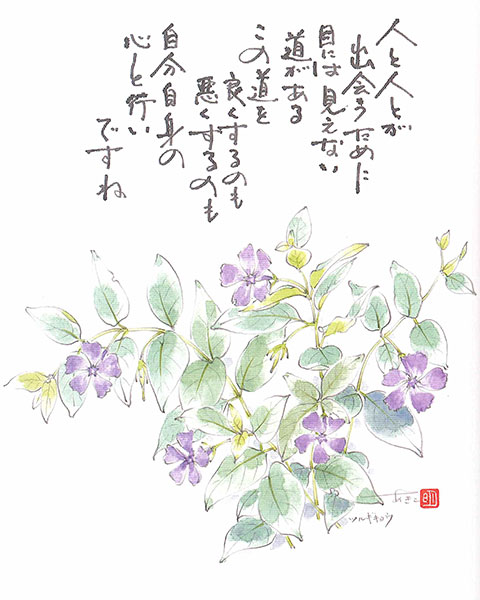 人と人とが
出会うために
目には見えない
道がある
この道を
良くするのも
悪くするのも
自分自身の
心と行い
ですね
ツルギキョウ